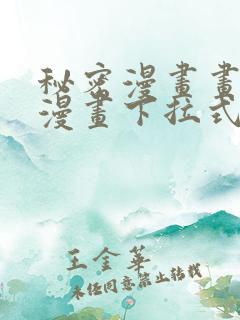 秘密漫畫畫
漫畫下拉式
王金華
未經同意禁止轉載